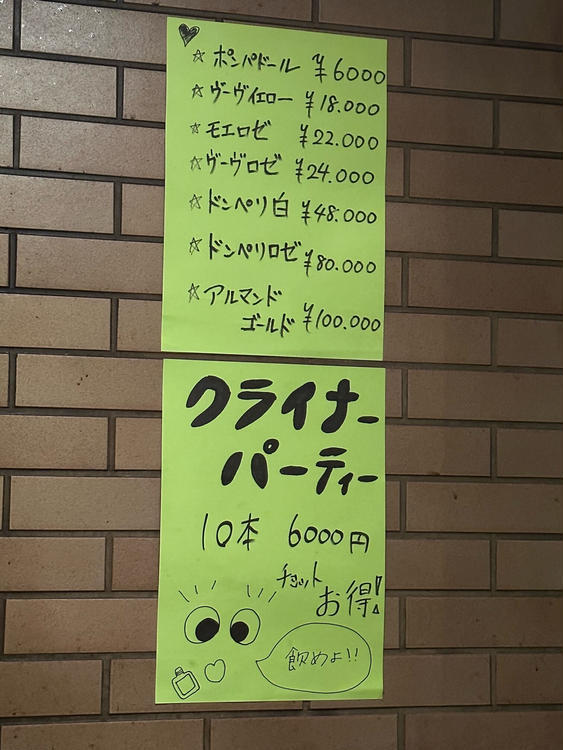 ☆ポンパドール ¥6000
☆ヴーヴイエロー ¥18.000
☆モエロゼ ¥22.000
☆ヴーヴロゼ ¥24.000
☆ドンペリ白 ¥48.000
☆ドンペリロゼ ¥80.000
☆アルマンド
ゴールド ¥100.000
クライナー
パーティー
10本 6000円
チョット
お得!
飲めよ!!